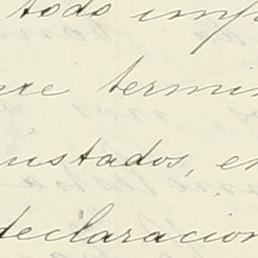 todo imp
re termin
ustados, en
declaracion